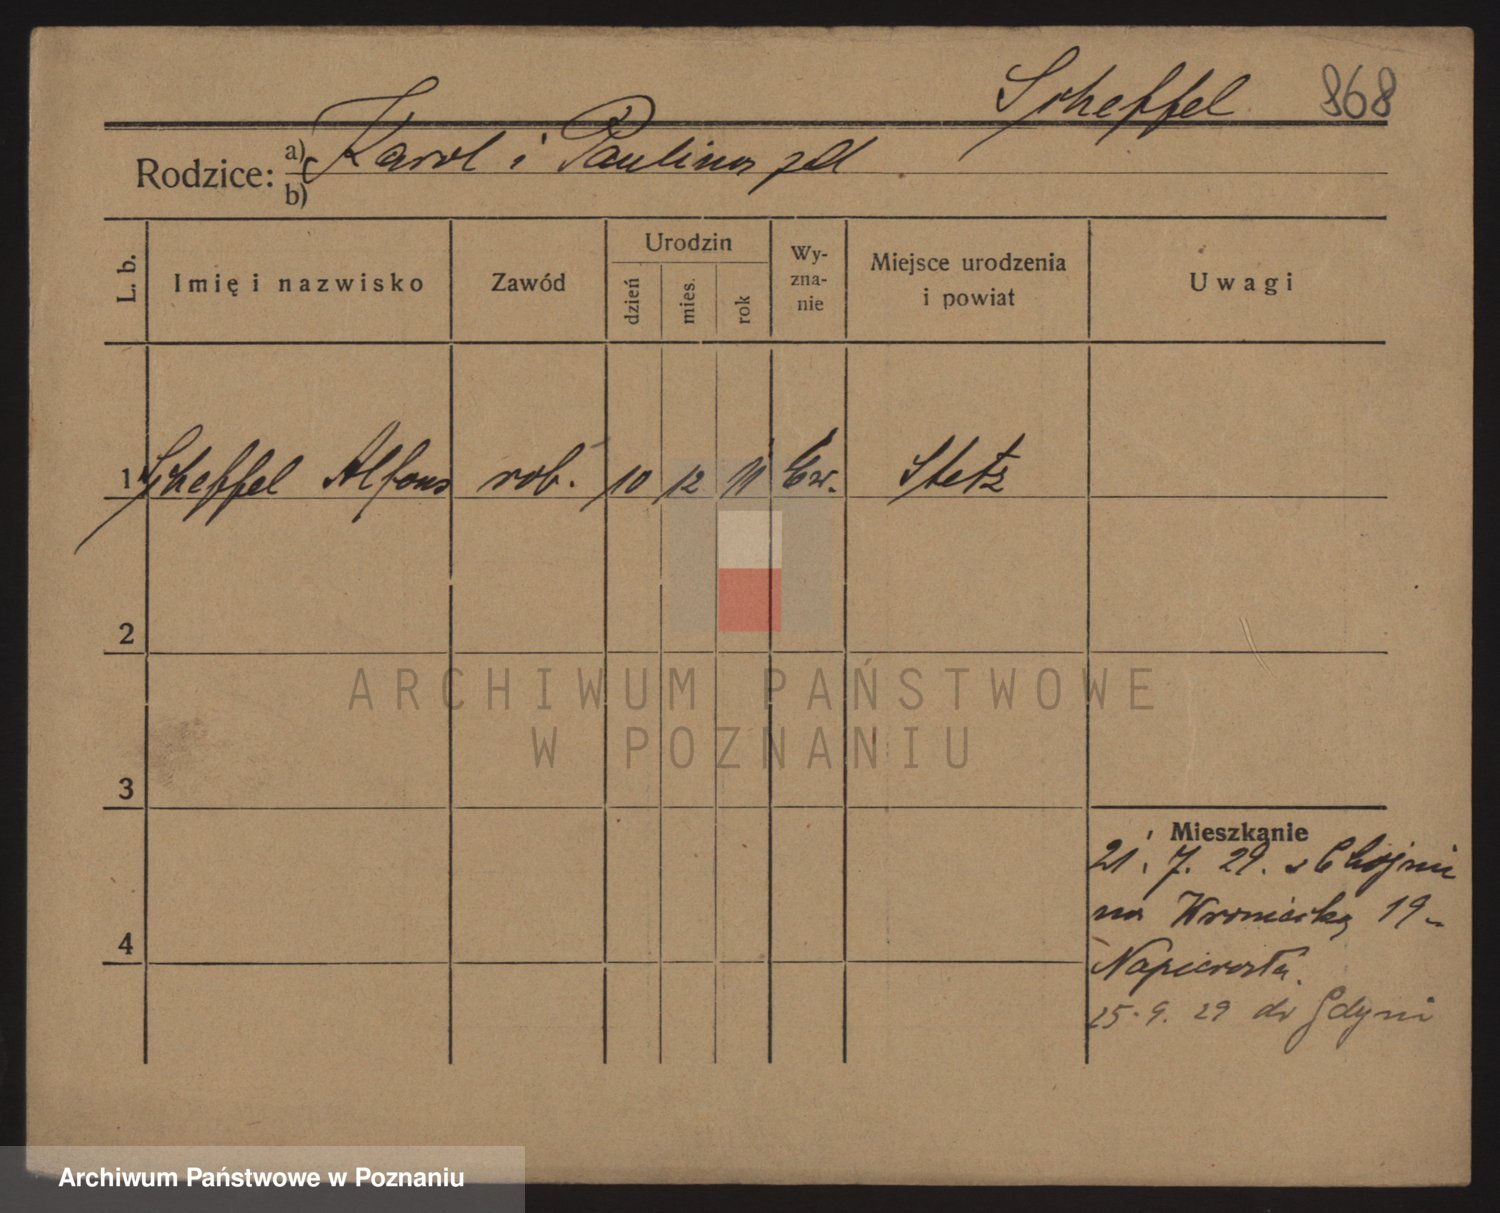 Scheffel 868
Rodzice: a) Karol i Paulina
b)
L. b. Imię i nazwisko Zawód Urodzin dzień mies. rok Wy-zna-nie Miejsce urodzenia i powiat Uwagi
1 Scheffel Alfons rob. 10 12 11 Ew.
2
3
4
Mieszkanie
21. 7. 29. z Chojni
na Wroniecką 19
25. 9. 29 do Gdyni
ARCHIWUM PAŃSTWOWE
W POZNANIU
Archiwum Państwowe w Poznaniu